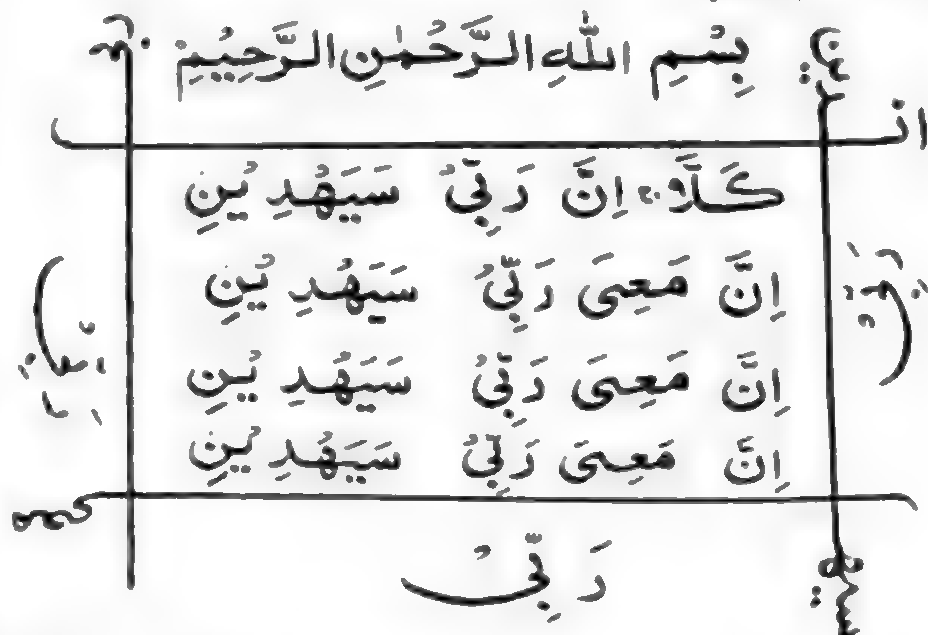 بِسْمِ اللّٰهِ الرَّحْمٰنِ الرَّحِيْمِ
كَلَّا ۚ اِنَّ رَبِّیْ سَيَهْدِ يْنِ
اِنَّ مَعِیَ رَبِّیْ سَيَهْدِ يْنِ
اِنَّ مَعِیَ رَبِّیْ سَيَهْدِ يْنِ
اِنَّ مَعِیَ رَبِّیْ سَيَهْدِ يْنِ
رَبِّیْ